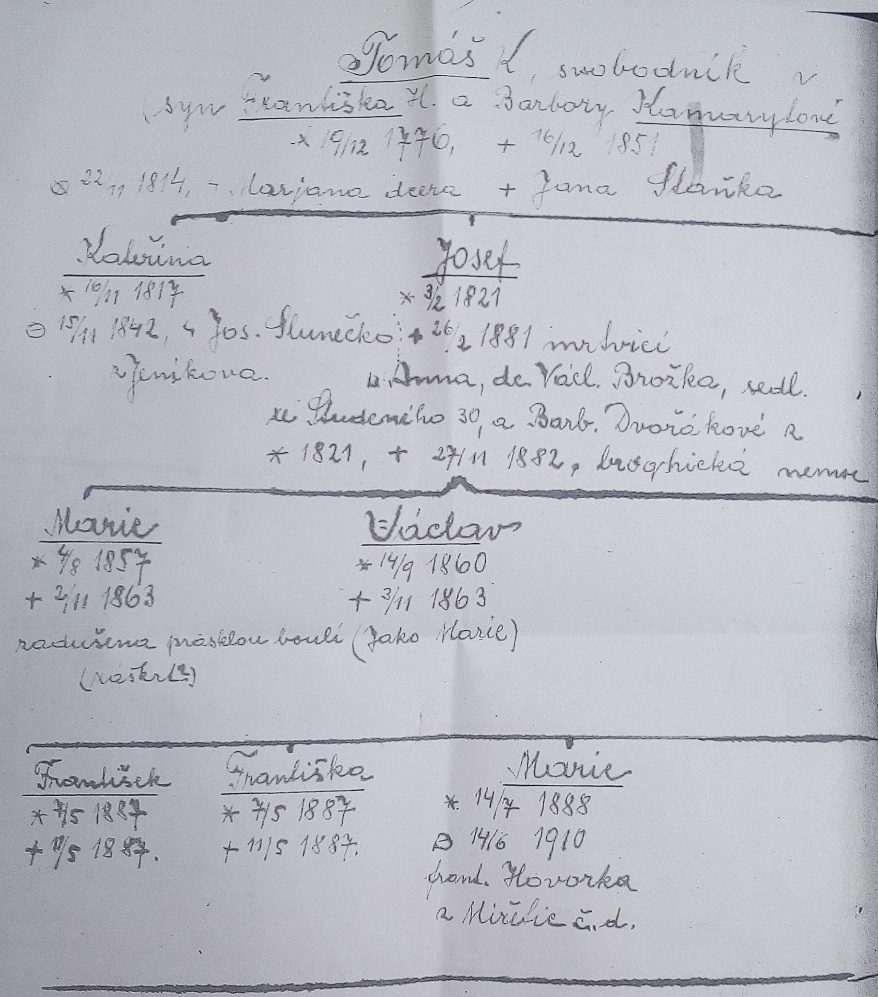 Tomáš K, svobodník v
(syn Františka K. a Barbory Kamarytové
* 19/12 1776, + 16/12 1851
22/11 1814, s Marjana dcera + Jana Staňka
Kateřina
* 16/11 1817
15/11 1842, s Jos. Slunečko
z Jeníkova.
Josef
* 3/2 1821
+ 26/2 1881 mrtvicí
Anna, dc. Václ. Brožka, sedl.
ze Studeného 30, a Barb. Dvořákové z
* 1821, + 27/11 1882, nemoc
Marie
* 4/8 1857
+ 2/11 1863
zadušena prasklou boulí
(záškrt?)
Václav
* 14/9 1860
+ 3/11 1863
(Jako Marie)
František
* 7/5 1887
+ 11/5 1887.
Františka
* 7/5 1887
+ 11/5 1887.
Marie
* 14/7 1888
14/6 1910
frant. Hovorka
z Miřetic č. d.